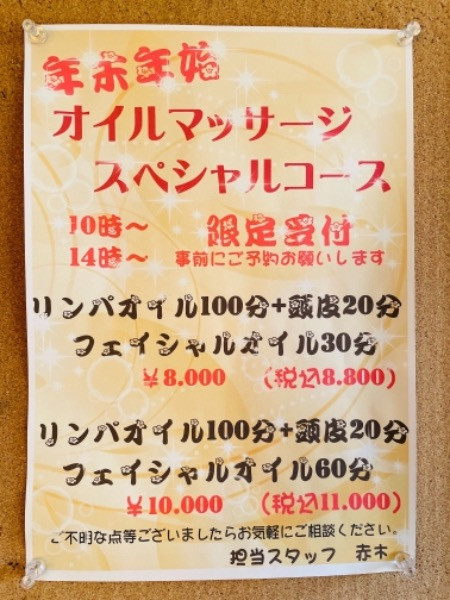 年末年始
オイルマッサージ
スペシャルコース
10時～ 限定受付
14時～ 事前にご予約お願いします
リンパオイル100分+頭皮20分
フェイシャルオイル30分
￥8.000 (税込8.800)
リンパオイル100分+頭皮20分
フェイシャルオイル60分
￥10.000 (税込11.000)
ご不明な点等ございましたらお気軽にご相談ください。
担当スタッフ 赤木